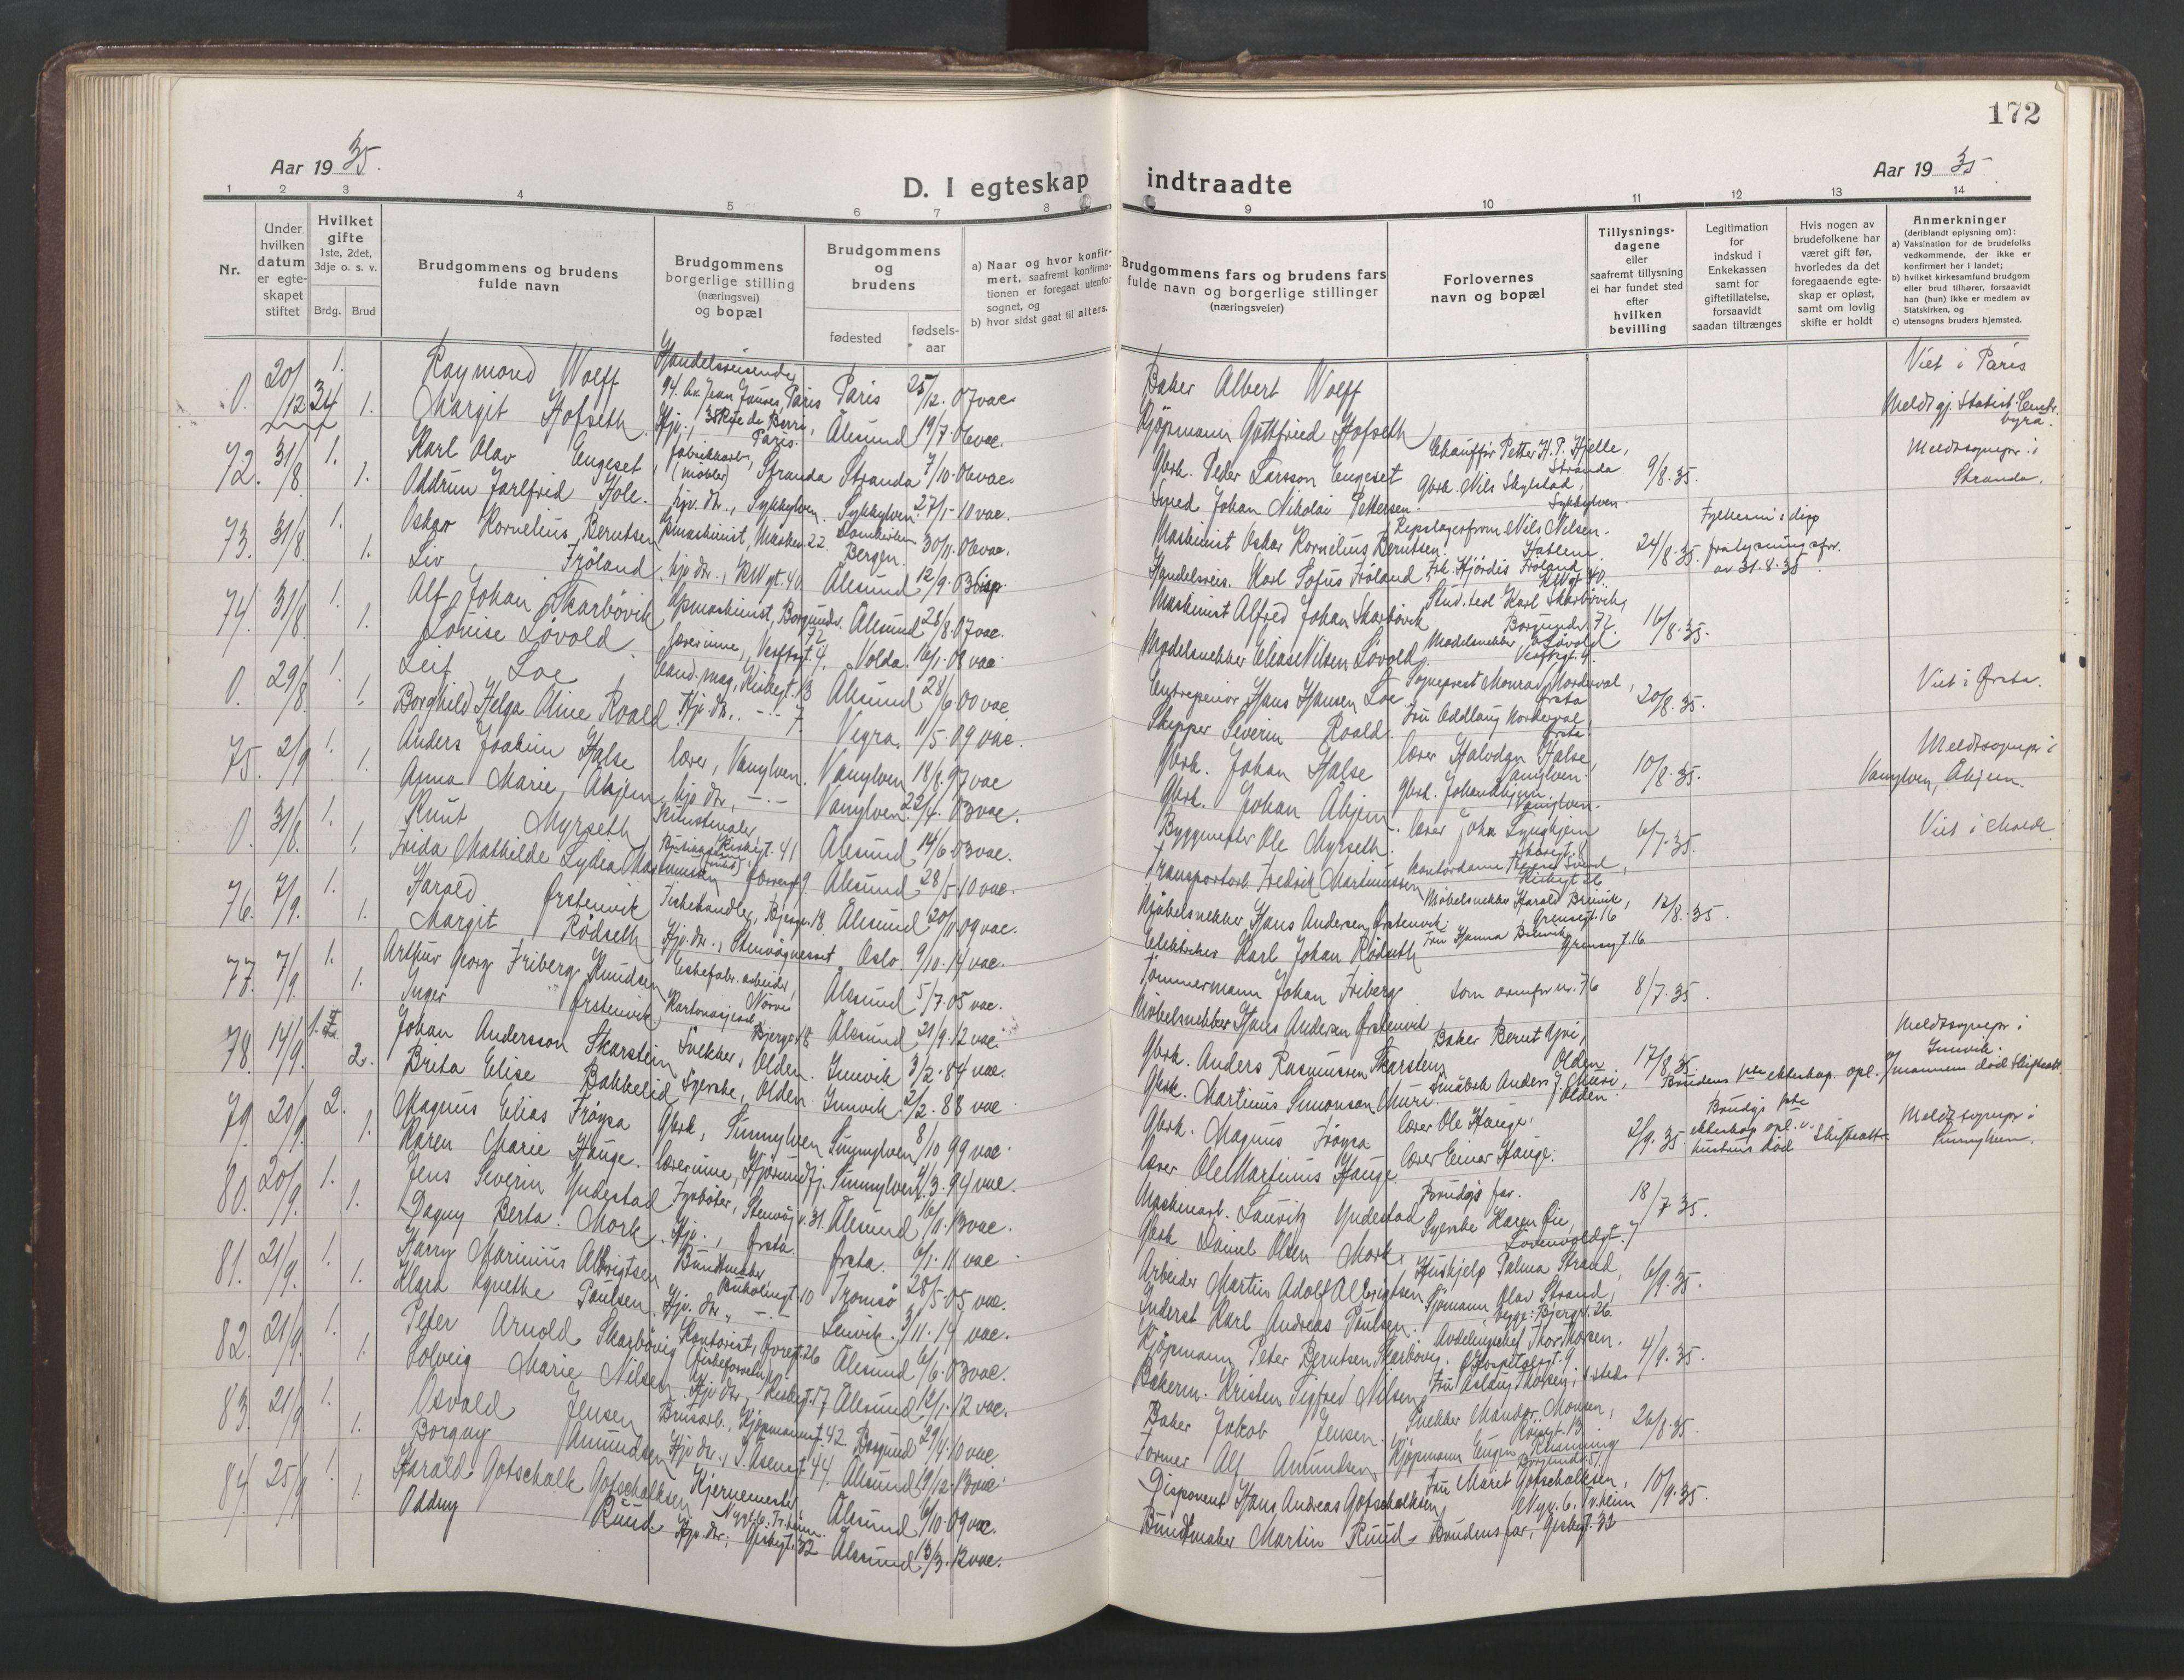 172
Aar 1935.
Aar 1935
D. I egteskap indtraadte
1 2 3 4 5 6 7 8 9 10 11 12 13 14
Nr.
Under hvilken datum er egteskapet stiftet
Hvilket gifte
1ste, 2det, 3dje o. s. v.
Brdg. Brud
Brudgommens og brudens fulde navn
Brudgommens borgerlige stilling (næringsvei) og bopæl
Brudgommens og brudens
fødested
fødsels-aar
a) Naar og hvor konfirmert, saafremt konfirmationen er foregaat utenfor sognet, og
b) hvor sidst gaat til alters.
Brudgommens fars og brudens fars fulde navn og borgerlige stillinger (næringsveier)
Forlovernes navn og bopæl
Tillysnings-dagene eller saafremt tillysning ei har fundet sted efter hvilken bevilling
Legitimation for indskud i Enkekassen samt for giftetillatelse, forsaavidt saadan tiltrænges
Hvis nogen av brudefolkene har været gift før, hvorledes da det foregaaende egteskap er opløst, samt om lovlig skifte er holdt
Anmerkninger
(deriblandt oplysning om):
a) Vaksination for de brudefolks vedkommende, der ikke er konfirmert her i landet;
b) hvilket kirkesamfund brudgom eller brud tilhører, forsaavidt han (hun) ikke er medlem av Statskirken, og
c) utensogns bruders hjemsted.
0. 20/12 34 1. Raymond Wolff Handelsreisende, 94. Av. Jean Jaures, Paris Paris 25/12.07 vac. Baker Albert Wolff Viet i Paris
1. Margit Hofseth Hjv., 38 Rue de Berri, Paris. Ålesund 19/7.06 vac. Kjøpmann Gottfried Hofseth Meldt gj. Statist. Centr. byrå.
72. 31/8. 1. Karl Olav Engeset fabrikkarb., (møbler) Stranda Stranda 7/10.06 vac. Gbrk. Peder Larsson Engeset Chauffør Petter H. P. Hjelle, Stranda 9/8.35. Meldt sognepr. i
1. Oddrun Jarlfrid Hole. hjv. dr., Sykkylven. Sykkylven. 27/1-10 vac. Smed Johan Nikolai Pettersen. Gbrk. Nils Skylstad, Sykkylven. Stranda.
73. 31/8. 1. Oskar Kornelius Berntsen maskinist, 22. Bergen. 30/11.06 vac. Maskinist Oskar Kornelius Berntsen. Nils Nelsen. 24/8.35. av 31.8.35.
1. Liv Frøland hjv dr., KWgt. 40 Ålesund 12/9.03 disp. Handelsreis. Karl Sofus Frøland Frk. Hjørdis Frøland KWgt 40.
74. 31/8. 1. Alf Johan Skarbøvik maskinist, Borgundv. 72 Ålesund 28/8.07 vac. Maskinist Alfred Johan Skarbøvik Stud. teol Karl Skarbøvik, Borgundv. 72. 16/8.35.
1. Lovise Løvold. lærerinne, Verftsgt. 4. Volda. 16/1.08 vac Modelsnekker Elias Nilsen Løvold. Modelsnekker Løvold Verftsgt. 4.
0. 29/8. 1. Leif Loe Cand. mag, Kirkegt. 13 Ålesund 28/6.00 vac Entrepenør Hans Hansen Loe Sogneprest Monrad Norderval, Ørsta 20/8.35. Viet i Ørsta.
1. Borghild Helga Oline Roald Hjv dr. -"- 7. Vigra. 11/5.09 vac. Skipper Severin Roald. Fru Oddlaug Norderval, Ørsta
75. 2/9 1. Anders Joakim Halse lærer, Vanylven. Vanylven 18/8.97 vac Gbrk. Johan Halse lærer Halvdan Halse, Vanylven. 10/8.35. Meldt sognepr i
1. Anna Marie Åhjem hjv dr., -"- Vanylven. 22/4.03 vac. Gbrk. Johan Åhjem. Gbrk. Johan Åhjem Vanylven. Vanylven, Åhjem.
0. 31/8. 1. Knut Myrseth Kunstmaler, Kirkegt. 41 Ålesund 14/6.03 vac. Byggmester Ole Myrseth. lærer John 6/7.35. Viet i Molde.
1. Frida Mathilde Lydia Martinussen 9. Ålesund 28/5.10 vac. Transportarb. Fredrik Martinussen kontordame Kirkegt 26
76. 7/9. 1. Harald Ørstenvik Fiskehandler, Bjergv. 18 Ålesund 20/11.09 vac. Møbelsnekker Hans Andersen Ørstenvik. Møbelsnekker Harald Brunvik, Grensegt. 16 12/8.35.
1. Margit Rødseth Hjv. dr., Stenvågneset Oslo. 9/10.14 vac. Elektriker Karl Johan Rødseth Fru Hanna Grensegt. 16
77. 7/9. 1. Arthur Georg Friberg Knudsen Eskefabr. arbeider, Nørve Ålesund 5/7.05 vac. Tømmermann Johan Friberg. som ovenfor nr. 76 8/7.35.
1. Inger Ørstenvik Bjergv. 18 Ålesund 21/9.12 vac. Møbelsnekker Hans Andersen Ørstenvik
78. 14/9. 1. Johan Andersson Skarstein Snekker, Olden. Innvik 3/2.84 vac. Gbrk. Anders Rasmussen Skarstein. Baker Bernt Yri, Olden. 17/8.35. Meldt sognepr i Innvik.
2. Brita Elise Bakkelid Syerske, Olden. Innvik 2/2.88 vac Gbrk. Martinus Simonson Muri. Småbrk Anders J. Muri, Olden. Brudens 1ste ekteskap. opl. v/ mannens død Skifteatt.
79. 20/9. 2. Magnus Elias Frøysa Gbrk, Sunnylven Sunnylven 8/10 99 vac. Gbrk. Magnus Frøysa lærer Ole Hauge. 2/9.35. Brudg. 1ste ekteskap opl. v. hustrus død Skifteatt. Meldt sognepr i
1. Karen Marie Hauge. lærerinne, Hjørundfj. Sunnylven 4/3.94 vac. lærer Ole Martinus Hauge lærer Einar Hauge. Sunnylven.
80. 20/9. 1. Jens Severin Yndestad Fyrbøter, Stenvågv. 31. Ålesund 16/11.13 vac. Maskinarb. Lauritz Yndestad Brudgs far. 18/7 35.
1. Dagny Berta Mork. Hjv., Ørsta. Ørsta. 6/1.11 vac Gbrk Daniel Olsen Mork. Syerske Karen Øie, Løvenvoldgt. 7
81. 21/9. 1. Harry Marinius Albrigtsen Buntmaker, Buholmgt. 10 Tromsø 28/5.05 vac. Arbeider Martin Adolf Albrigtsen Hushjelp Palma Strand, 6/9.35.
1. Klara Agnethe Paulsen. Hjv. dr., -"- Lenvik. 3/11.14 vac. Inderst Karl Andreas Paulsen. Sjømann Olav Strand, begge: Bjergv. 26.
82. 21/9. 1. Peter Arnold Skarbøvig Kontorist, Øvregt. 26 Ålesund 6/6.03 vac. Kjøpmann Peter Berntsen Skarbøvig. Avdelingschef Thor Thorsen. Hospitalsgt. 9 4/9.35.
1. Solveig Marie Nilsen. Hjv dr., Kirkegt. 17 Ålesund 12/1.12 vac. Bakerm. Kristen Sigfred Nilsen Fru Aslaug Thorsen, s. sted.
83. 21/9 1. Osvald Jensen Brusarb., Kjøpmannsgt. 42 Borgund 29/4.10 vac. Baker Jakob Jensen. Snekker Mandor Monsen, 26/8.35.
1. Borgny Amundsen Hjv dr., I. Åsensgt. 44. Ålesund 19/12.13 vac. Former Alf Amundsen Kjøpmann Eugen Borgundv. 51.
84. 25/9 1. Harald Gotschalk Gotschalksen Kjernemester, Nygt. 6. Tr.heim. Ålesund 6/10.09 vac. Disponent Hans Andreas Gotschalksen, Fru Marit Gotschalksen, Nygt. 6. Tr.heim 10/9.35.
1. Oddny Ruud. Hjv. dr., Giskegt. 32 Ålesund 13/3.12 vac. Buntmaker Martin Ruud. Brudens far, Giskegt. 32